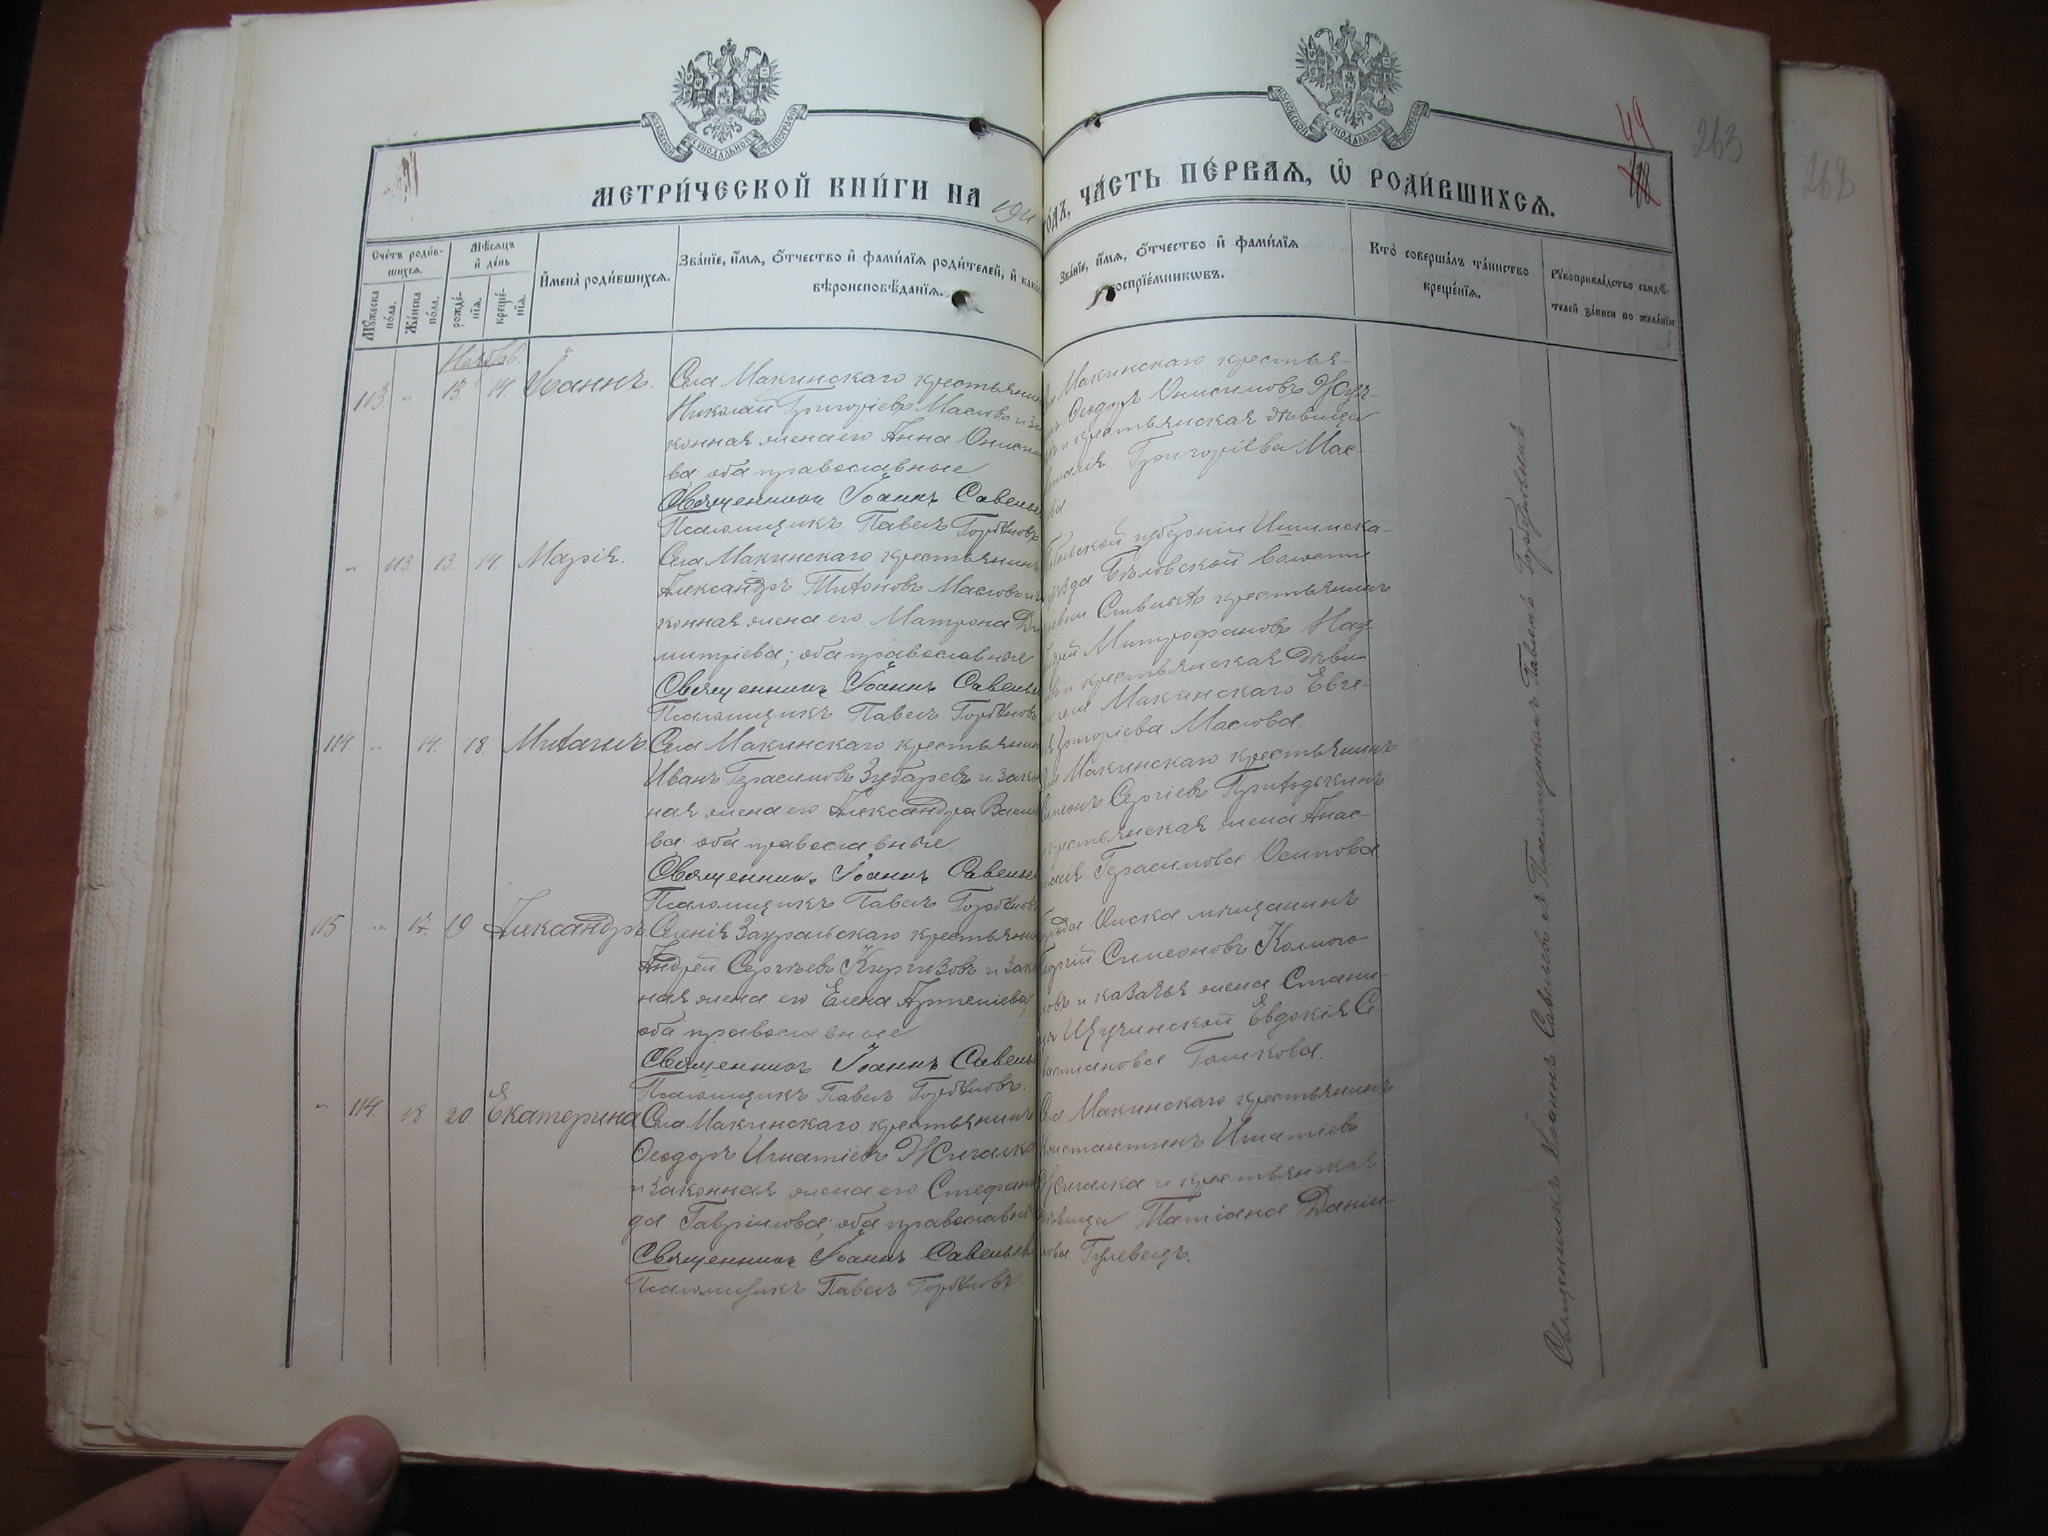 МОСКОВСКОЙ СѴНОДАЛЬНОЙ ТИПОГРАФІИ
МОСКОВСКОЙ СѴНОДАЛЬНОЙ ТИПОГРАФІИ
263
268
МЕТРИ́ЧЕСКОЙ КНИ́ГИ НА 191
ОДЪ, ЧА́СТЬ ПЕ́РВАЯ, Ѡ РОДИ́ВШИХСЯ.
Сче́тъ роди́в-
шихся
Мꙋ́жеска по́ла.
Же́нска по́ла.
Мѣ́сяцъ и де́нь
рожде́-
нїя.
креще́-
нїя.
И́мена̀ роди́вшихся.
Зва́нїе, и́мя, ѻ́тчество и фами́лїя роди́телей, и како
вѣроисповѣ́данїя.
Зва́нїе, и́мя, ѻ́тчество и фами́лїя
воспрїе́мникѡвъ.
Кто̀ соверша́лъ та́инство
креще́нїя.
Рꙋкоприкла́дство свидѣ́-
телей за́писи по жела́нїю
Ноябр.
113. " 13 14. Іоаннъ.
Села Макинскаго крестьянин
Николай Григоріевъ Масловъ и за
конная жена его Анна Онисим
ва оба православные
Священникъ Іоаннъ Савельев
Псаломщикъ Павелъ Горбуновъ
а Макинскаго крестья-
нъ Ѳеодоръ Онисимовъ
и крестьянская дѣвица
талія Григоріева Мас-
ва
" 113. 13. 14. Марія.
Села Макинскаго крестьянинъ
Александръ Тихоновъ Масловъ и з
конная жена его Матрона Ди
митріева; оба православные
Священникъ Іоаннъ Савельев
Псаломщикъ Павелъ Горбуновъ
больской губерніи Ишимска-
уѣзда Бѣловской волости
ревни крестьянинъ
дрей Митрофановъ Наз-
въ и крестьянская дѣви-
ца села Макинскаго Евге-
я Григоріева Маслова.
114 " 14. 18. Михаилъ
Села Макинскаго крестьянин
Иванъ Герасимовъ Зубаревъ и закон
ная жена его Александра Васил
ва оба православные.
Священникъ Іоаннъ Савельев
Псаломщикъ Павелъ Горбуновъ
а Макинскаго крестьянинъ
Симеонъ Сергіевъ Прихотькинъ
крестьянская жена Анас-
тасія Герасимова Осипова
115 " 17. 19. Александръ
Селенія Зауральскаго крестьянин
Андрей Сергѣевъ Киргизовъ и зако
ная жена его Елена Артеміева,
оба православные
Священникъ Іоаннъ Савельев
Псаломщикъ Павелъ Горбуновъ.
города Омска мѣщанинъ
Георгій Симеоновъ Колмого-
ровъ и казачья жена Стани-
цы Щучинской Евдокія Се-
вастіанова
" 114. 18 20 Екатерина
Села Макинскаго крестьянинъ
Ѳеодоръ Игнатіевъ Жигалка
и законная жена его Стефани
да Гавріилова; оба православны
Священникъ Іоаннъ Савельев
Псаломщикъ Павелъ Горбуновъ.
Села Макинскаго крестьянинъ
Константинъ Игнатіевъ
Жигалка и крестьянская
дѣвица Татіана Даніи-
лова Гулевецъ.
Священникъ Іоаннъ Савельевъ съ Псаломщикомъ Павломъ Горбуновымъ.